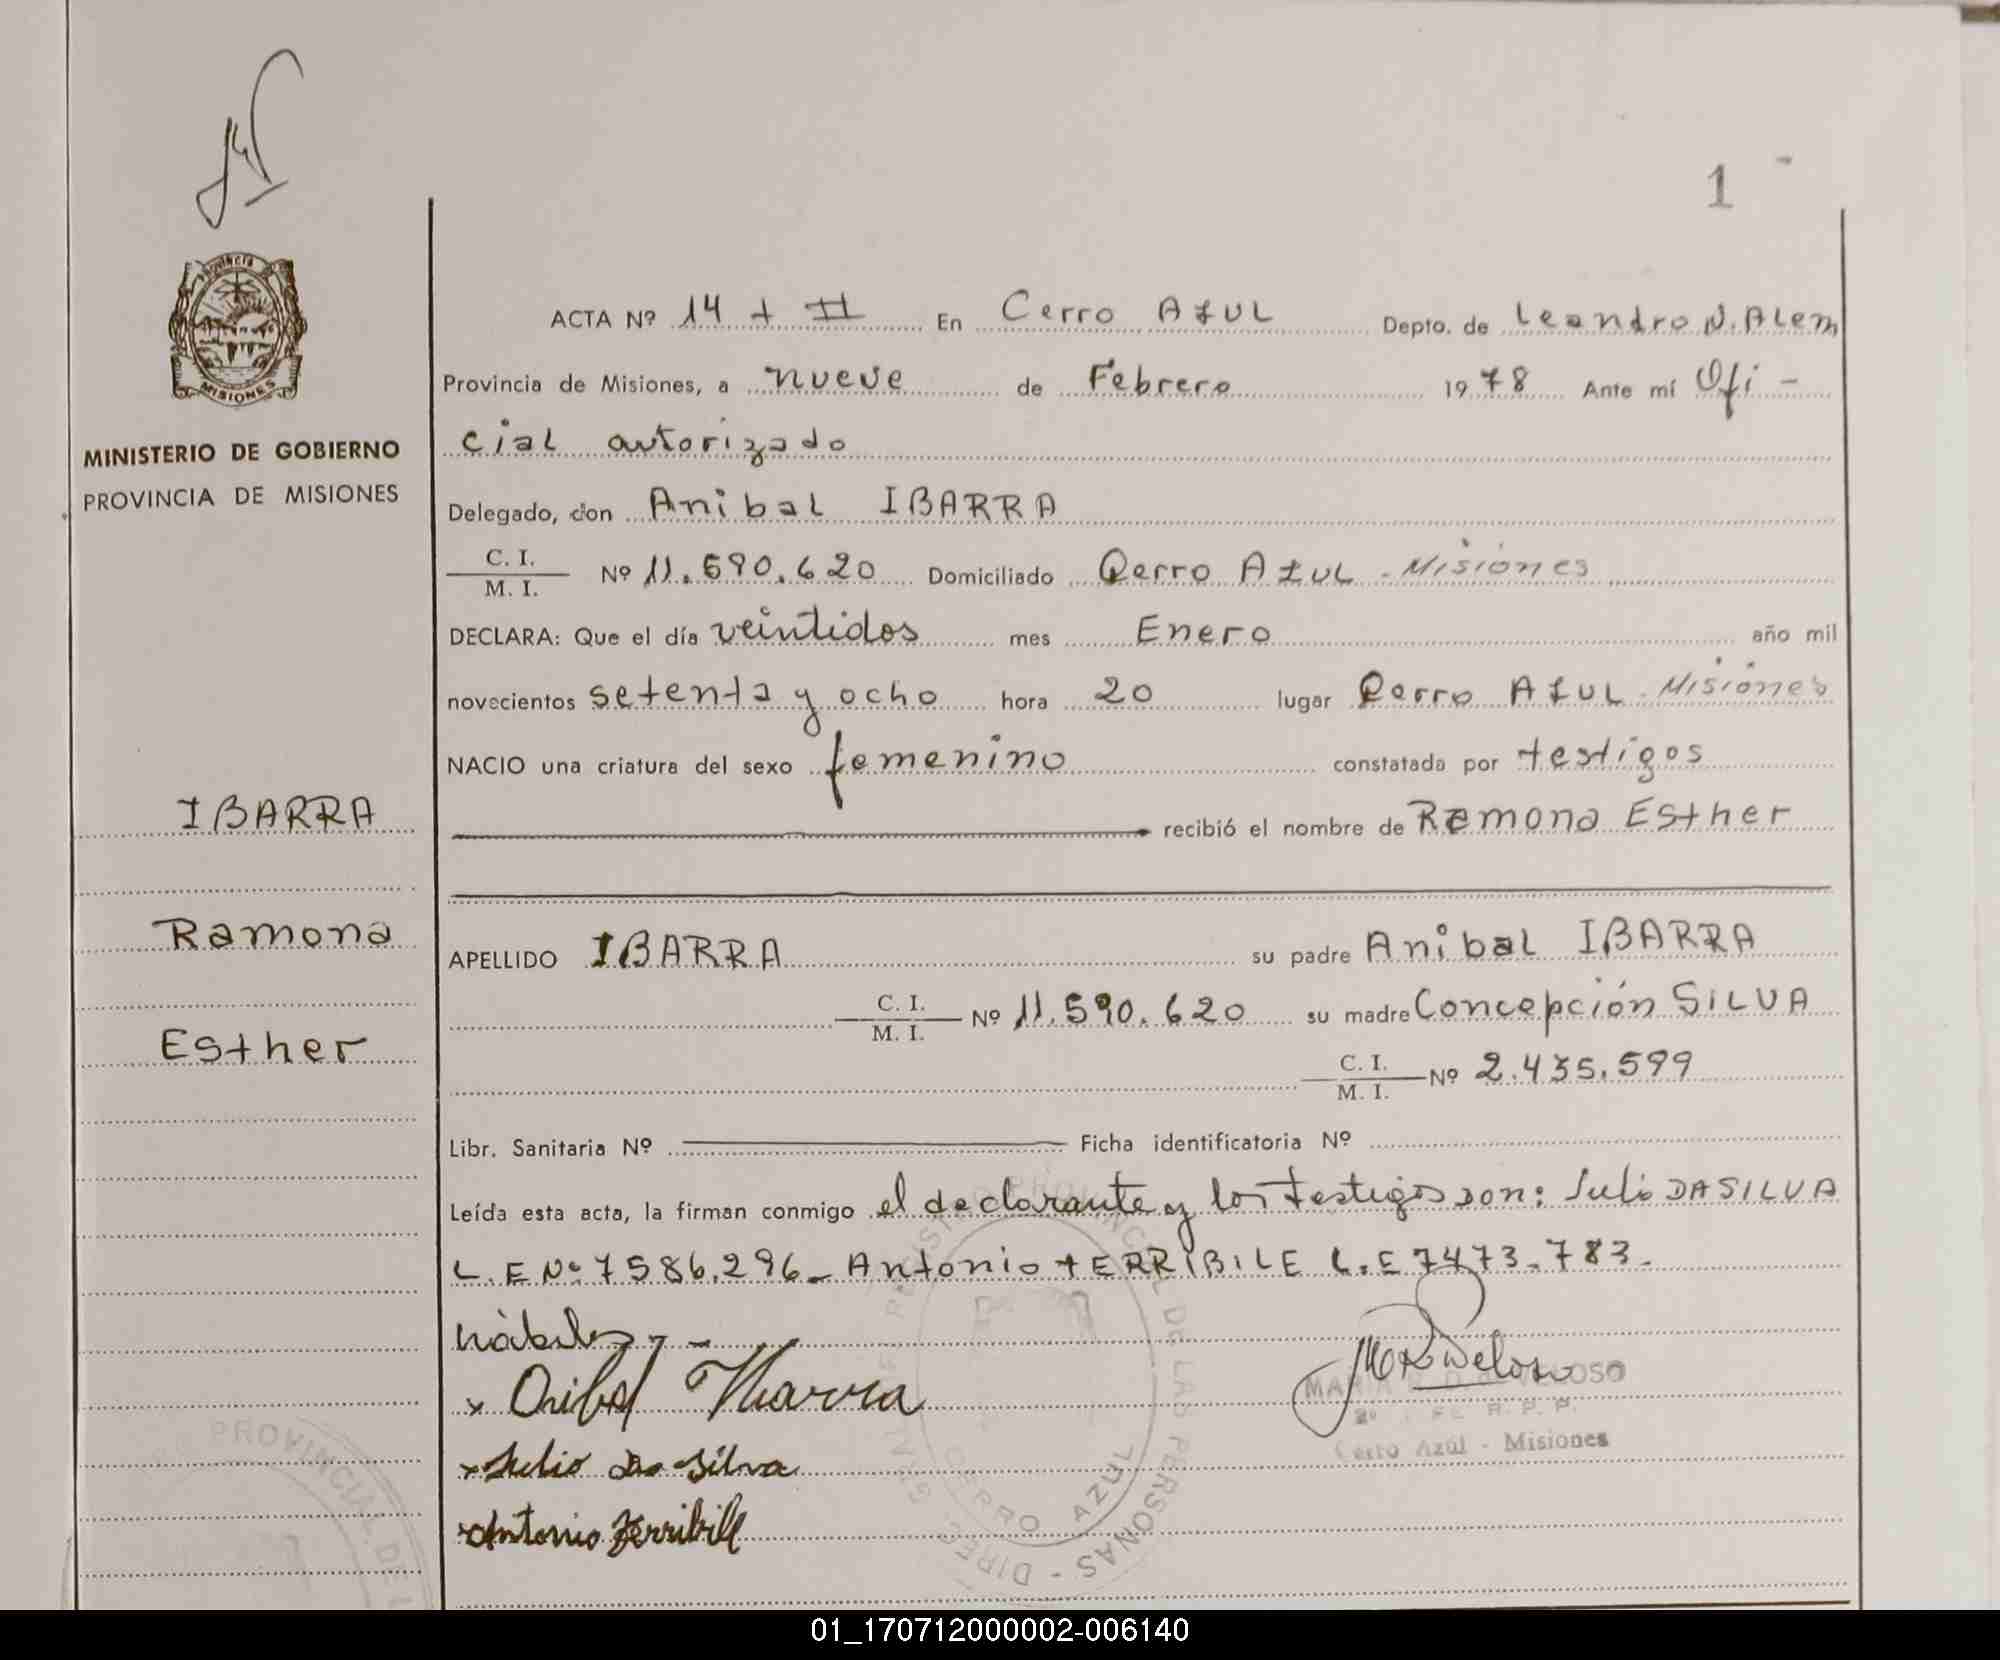 1
PROVINCIA
MISIONES
MINISTERIO DE GOBIERNO
PROVINCIA DE MISIONES
IBARRA
Ramona
Esther
ACTA Nº 14 + II En Cerro AZUL Depto. de Leandro N. Alem
Provincia de Misiones, a nueve de Febrero 1978 Ante mí Ofi-
cial autorizado
Delegado, don Anibal IBARRA
C. I.
M. I. Nº 11.590.620 Domiciliado Cerro AZUL - Misiones
DECLARA: Que el día veintidos mes Enero año mil
novecientos setenta y ocho hora 20 lugar Cerro AZUL - Misiones
NACIO una criatura del sexo femenino constatada por testigos
recibió el nombre de Ramona Esther
APELLIDO IBARRA su padre Anibal IBARRA
C. I.
M. I. Nº 11.590.620 su madre Concepción SILVA
C. I.
M. I. Nº 2.435.599
Libr. Sanitaria Nº Ficha identificatoria Nº
Leída esta acta, la firman conmigo el declarante y los testigos son: Julio DASILVA
L.E Nº 7586.296 - Antonio TERRIBILE L.E 7473.783.
hábiles, -
x Anibal Ibarra
x Julio Da Silva
x Antonio Terribile
Cerro Azul - Misiones
REGISTRO PROVINCIAL DE LAS PERSONAS - DIREC. GRAL.
CERRO AZUL
PROVINCIAL DE L
01_170712000002-006140